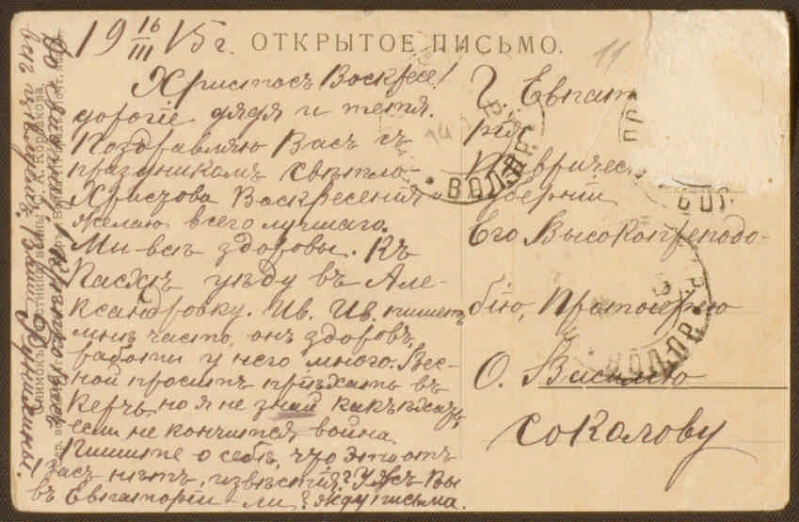 19 16/III 15 г.
ОТКРЫТОЕ ПИСЬМО.
11
Христосъ Воскресе!
дорогіе дядя и тетя.
Поздравляю Васъ съ
праздникомъ свѣтло-
Христова Воскресенія
желаю всего лучшаго.
Мы всѣ здоровы. Къ
Пасхѣ уѣду въ Але-
ксандровку. Ив. Ив. пишетъ
мнѣ часто, онъ здоровъ,
работы у него много. Вес-
ной проситъ пріѣхать въ
Керчь, но я не знаю какъ ѣхать
если не кончится война.
Пишите о себѣ, что это отъ
Васъ нѣтъ извѣстій? Ужъ Вы
въ Евпаторіи-ли? Жду письма.
Г. Евпат
рія
Таврическ
губерніи
Его Высокопреподо-
бію, Протоіерею
О. Василію
Соколову
ВОЛ.ПР.
ВОЛ.ПР.
Снимокъ участника войны К. Корсакова.